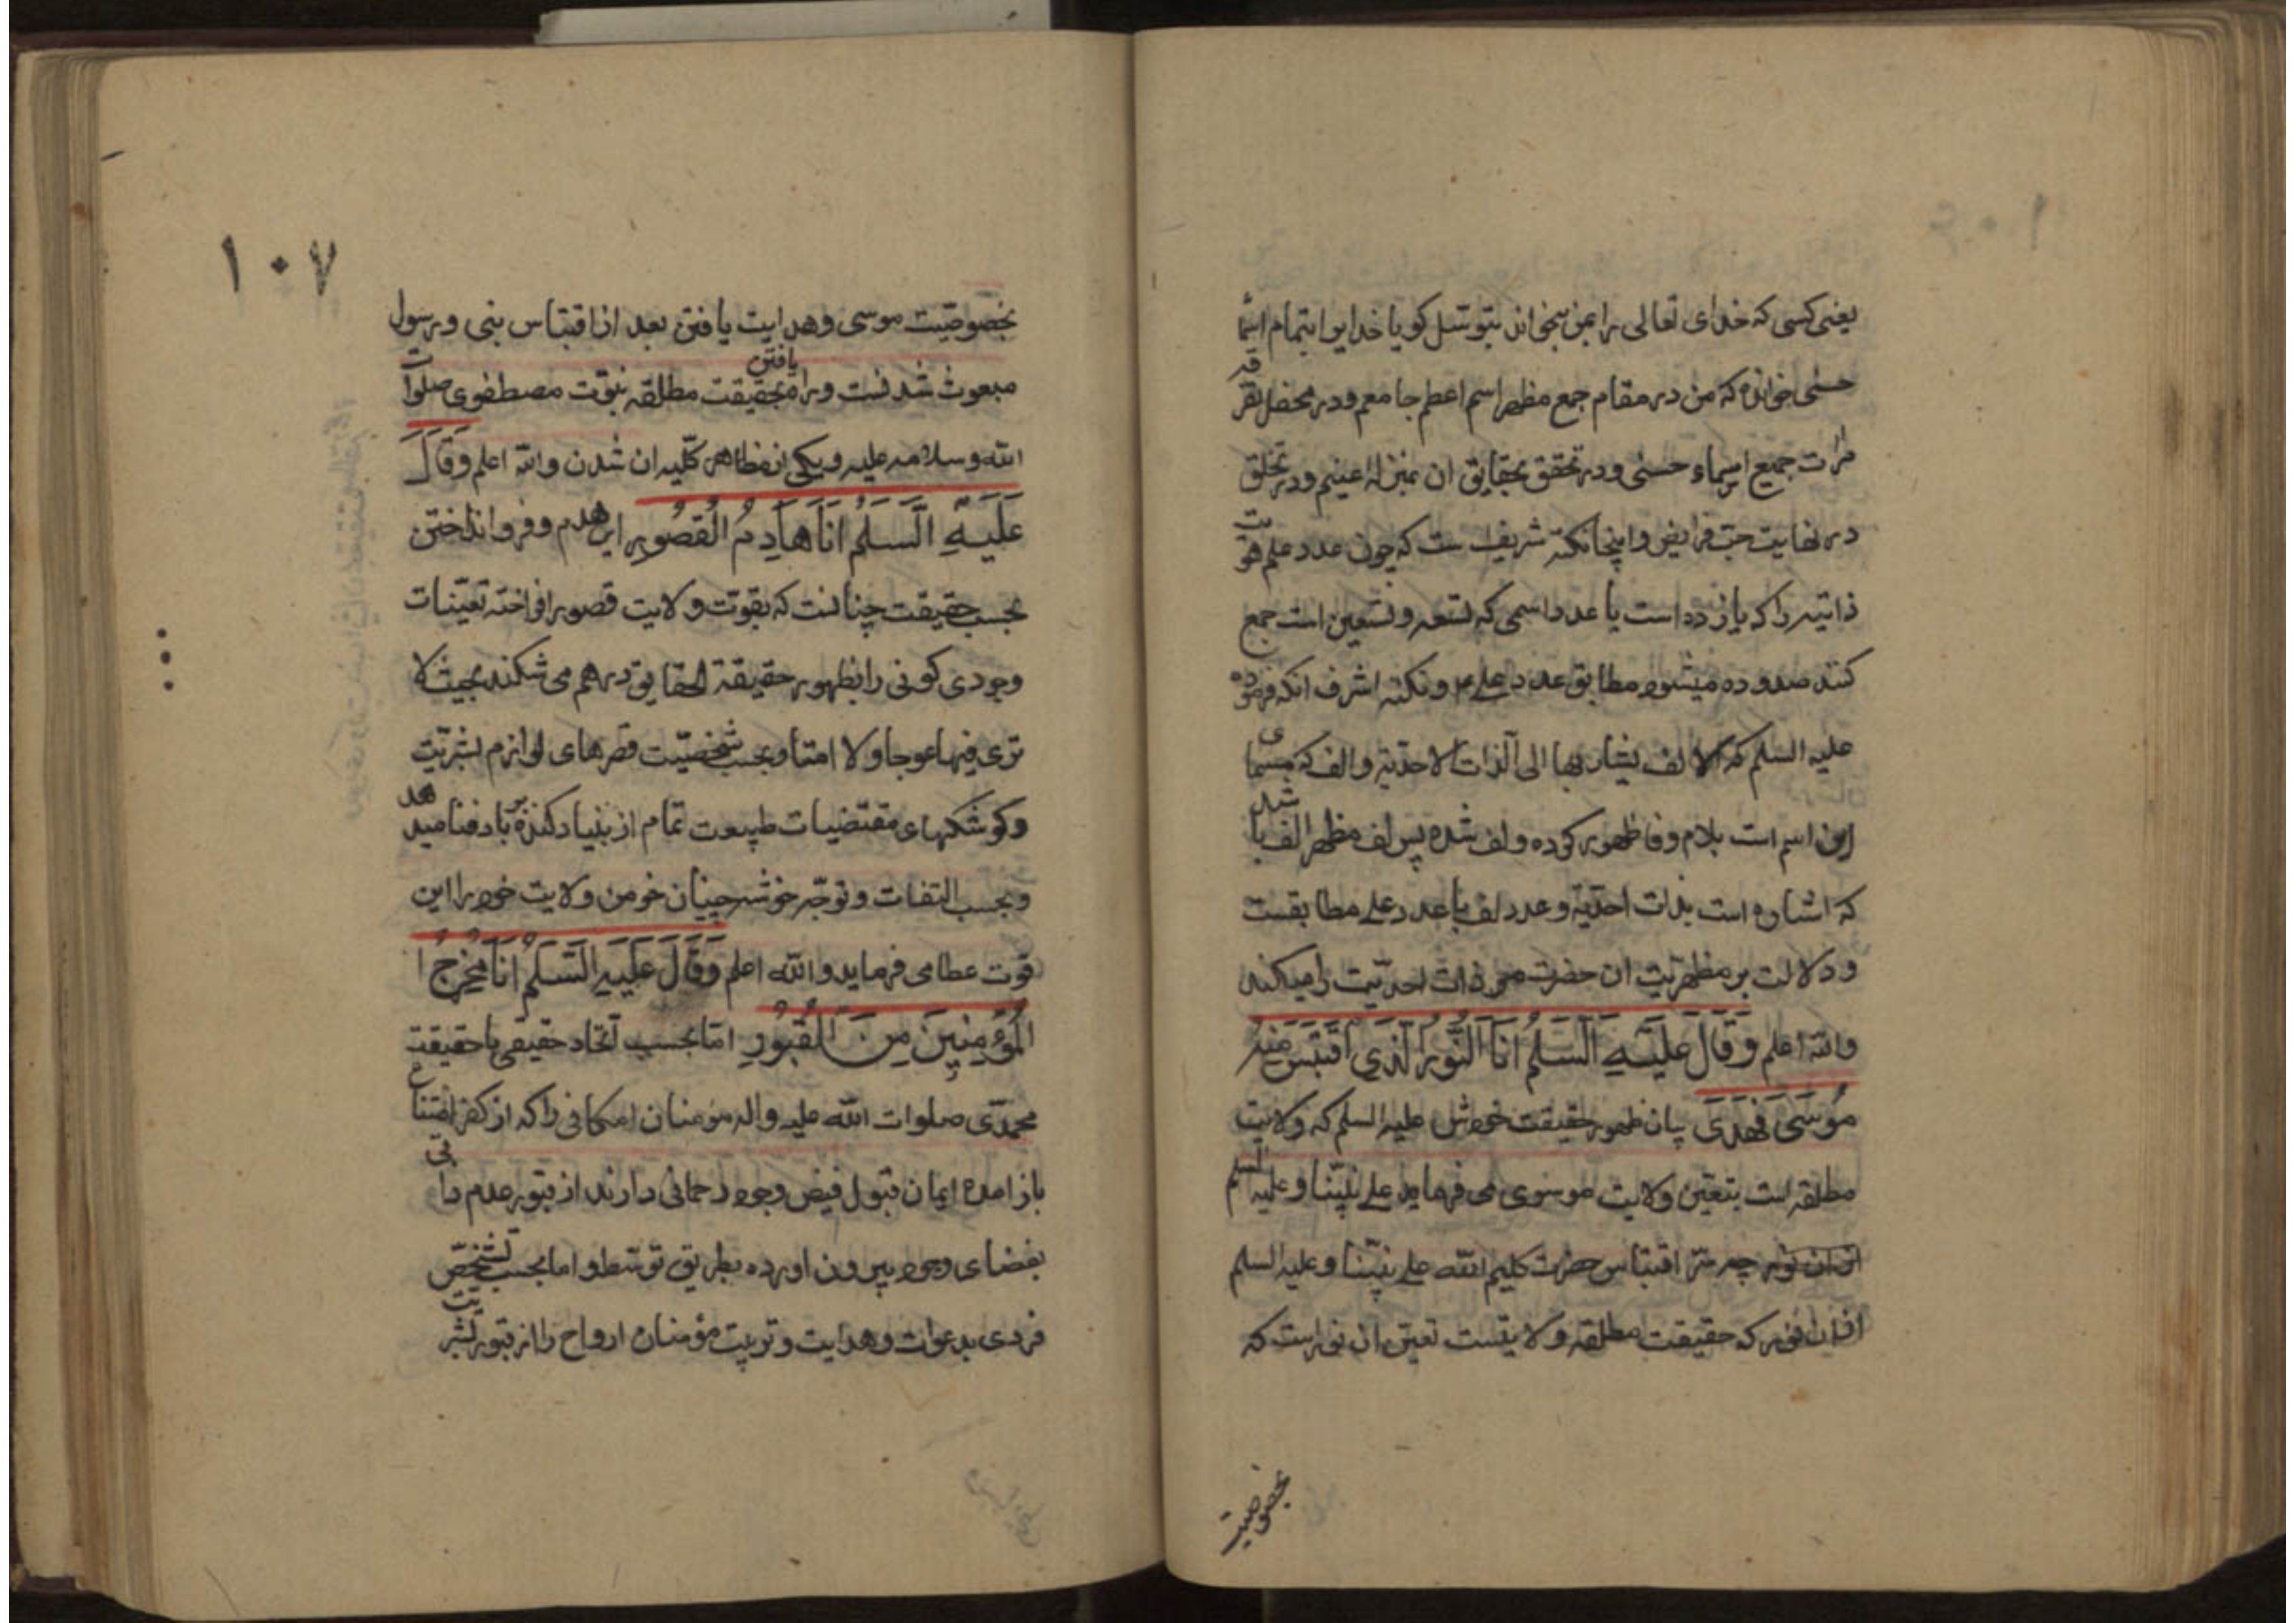 یعنی کسی که خدای تعالی را بمن بخواند بتوسل کویا خدایرا بتمام اسمآء
حسنی خوانده که من در مقام جمع مظهر اسم اعظم جامعم و در محفل تفرقه
مرات جمیع اسماء حسنی و در تحقق بحقایق ان بمنزله اعینم و در تخلق
در نهایت حب فرایض و اینجا نکته شریف ست که چون عدد علم هویت
ذاتیه را که یازده است با عدد اسمی که تسعه و تسعین است جمع
کنند صد و ده میشود مطابق عدد علی ع و نکته اشرف انکه فرموده
علیه السلم که الالف یشار بها الی الذات الاحدیة و الف که مسمای
این اسم است بلام و فا ظهور کرده و لف شده پس لف مظهر الف باشد
که اشاره است بذات احدیة و عدد لف با عدد علی مطابقست
و دلالت بر مظهریت ان حضرت مر ذات احدیت را میکند
والله اعلم وَقَالَ عَلَيْهِ السَّلَمُ اَنَا النُّورُ الَّذِي اَقْتَبَسَ مِنْهُ
مُوسَى فَهَدَى بیان ظهور حقیقت خودش علیه السلم که ولایت
مطلقه است بتعین ولایت موسوی می فرماید علی نبینا و علیه السلم
از ان نور چه سر اقتباس حضرت کلیم الله علی نبینا و علیه السلم
از ان نور که حقیقت مطلقه ولایتست تعین ان نور است که
بخصوصیت
۱۰۷
بخصوصیت موسی و هدایت یافتن بعد از اقتباس بنی و رسول
مبعوث شدنست و راه یافتن بحقیقت مطلقه نبوت مصطفوی صلوات
الله و سلامه علیه و یکی از مظاهر کلیه ان شدن والله اعلم وَقَالَ
عَلَيْهِ السَّلَمُ اَنَا هَادِمُ الْقُصُورِ این هدم و فرو انداختن
بحسب حقیقت چنانست که بقوت ولایت قصور افراخته تعینات
وجودی کونی را بظهور حقیقة الحقایق درهم می شکند بحیث لا
تری فیها عوجا ولا امتا و بحسب شخصیت قصرهای لوازم بشریت
و کوشکهای مقتضیات طبیعت تمام از بنیاد کنده بر باد فنا میدهد
و بحسب التفات و توجه خوشه چینان خرمن ولایت خود را این
قوت عطا می فرماید والله اعلم وَقَالَ عَلَيْهِ السَّلَمُ اَنَا مُخْرِجُ ا
لْمُؤْمِنِينَ مِنَ الْقُبُورِ اما بحسب اتحاد حقیقی با حقیقت
محمدی صلوات الله علیه و اله مؤمنان امکانی را که از کفر امتناع
باز امده ایمان قبول فیض وجود رحمانی دارند از قبور عدم ذاتی
بفضای وجود بیرون اورده بطریق توسط و اما بحسب تشخص
فردی بدعوت و هدایت و تربیت مؤمنان ارواح را از قبور بشریت